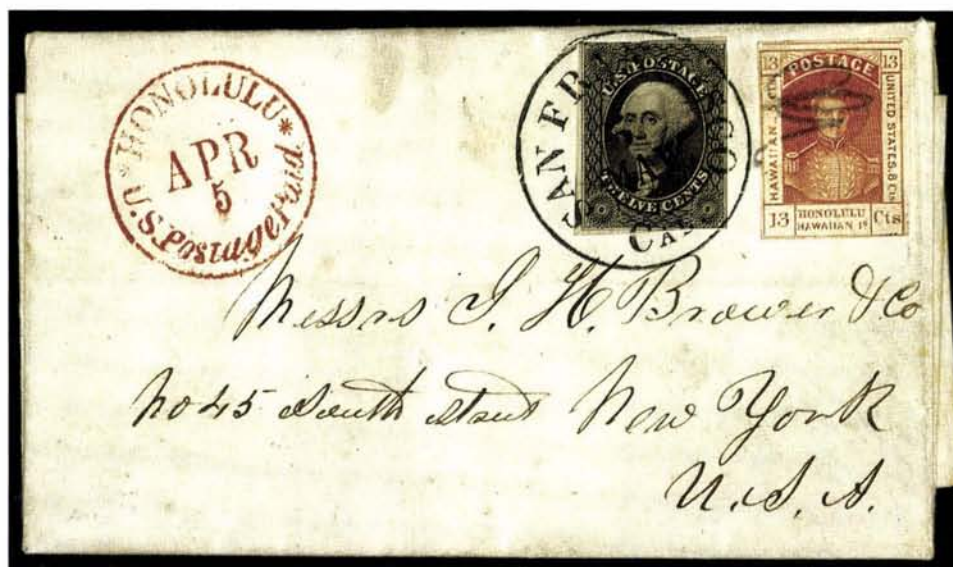 *HONOLULU*
APR
5
U.S. Postage Paid
SAN FRANCISCO
CAL
U.S. POSTAGE
TWELVE CENTS
13 POSTAGE 13
HAWAIIAN
UNITED STATES. 8 Cts
13 HONOLULU Cts
HAWAIIAN Is
Messrs I. H. Brower & Co
No 45 South Street New York
U.S.A.